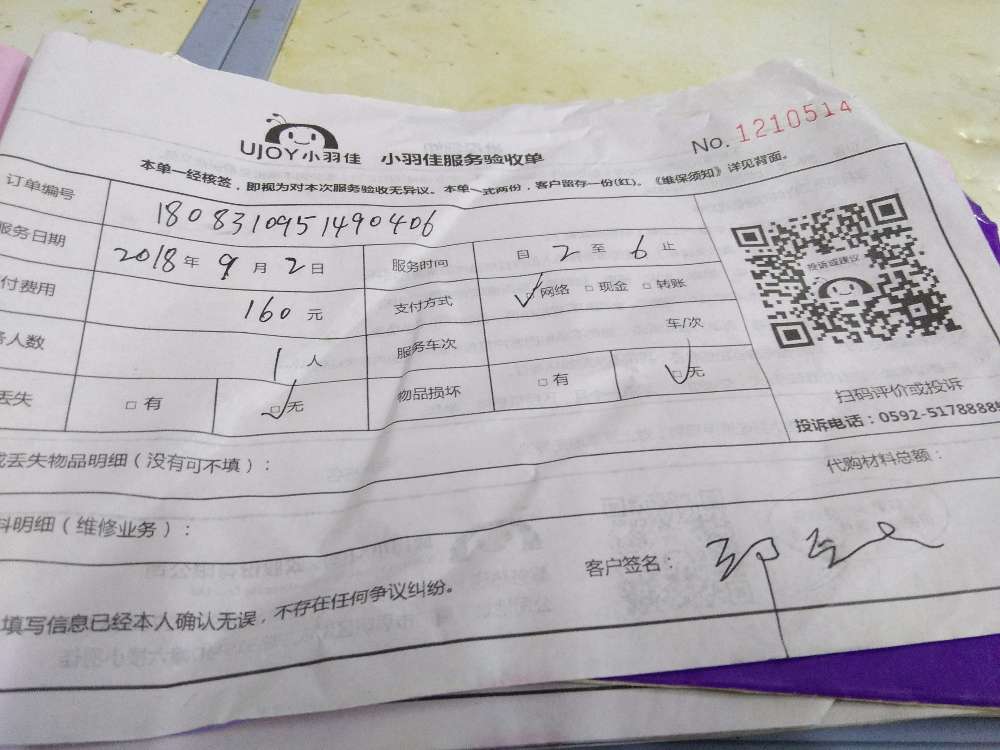 UJOY小羽佳 小羽佳服务验收单
No. 1210514
本单一经核签，即视为对本次服务验收无异议。本单一式两份，客户留存一份(红)。《维保须知》详见背面。
订单编号 1808310951490406
服务日期 2018年9月2日 服务时间 自2至6止
付费用 160元 支付方式 ☑网络 □现金 □转账
人数 1人 服务车次 车/次
丢失 □有 ☑无 物品损坏 □有 ☑无
投诉或建议
扫码评价或投诉
投诉电话：0592-5178888
丢失物品明细（没有可不填）： 代购材料总额：
料明细（维修业务）：
客户签名：
填写信息已经本人确认无误，不存在任何争议纠纷。